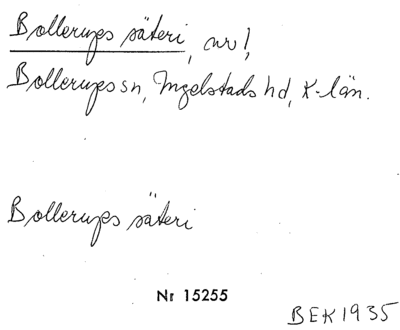 Bollerups säteri, nr 1,
Bollerups sn, Ingelstads hd, K-län.
Bollerups säteri
Nr 15255
BEK 1935